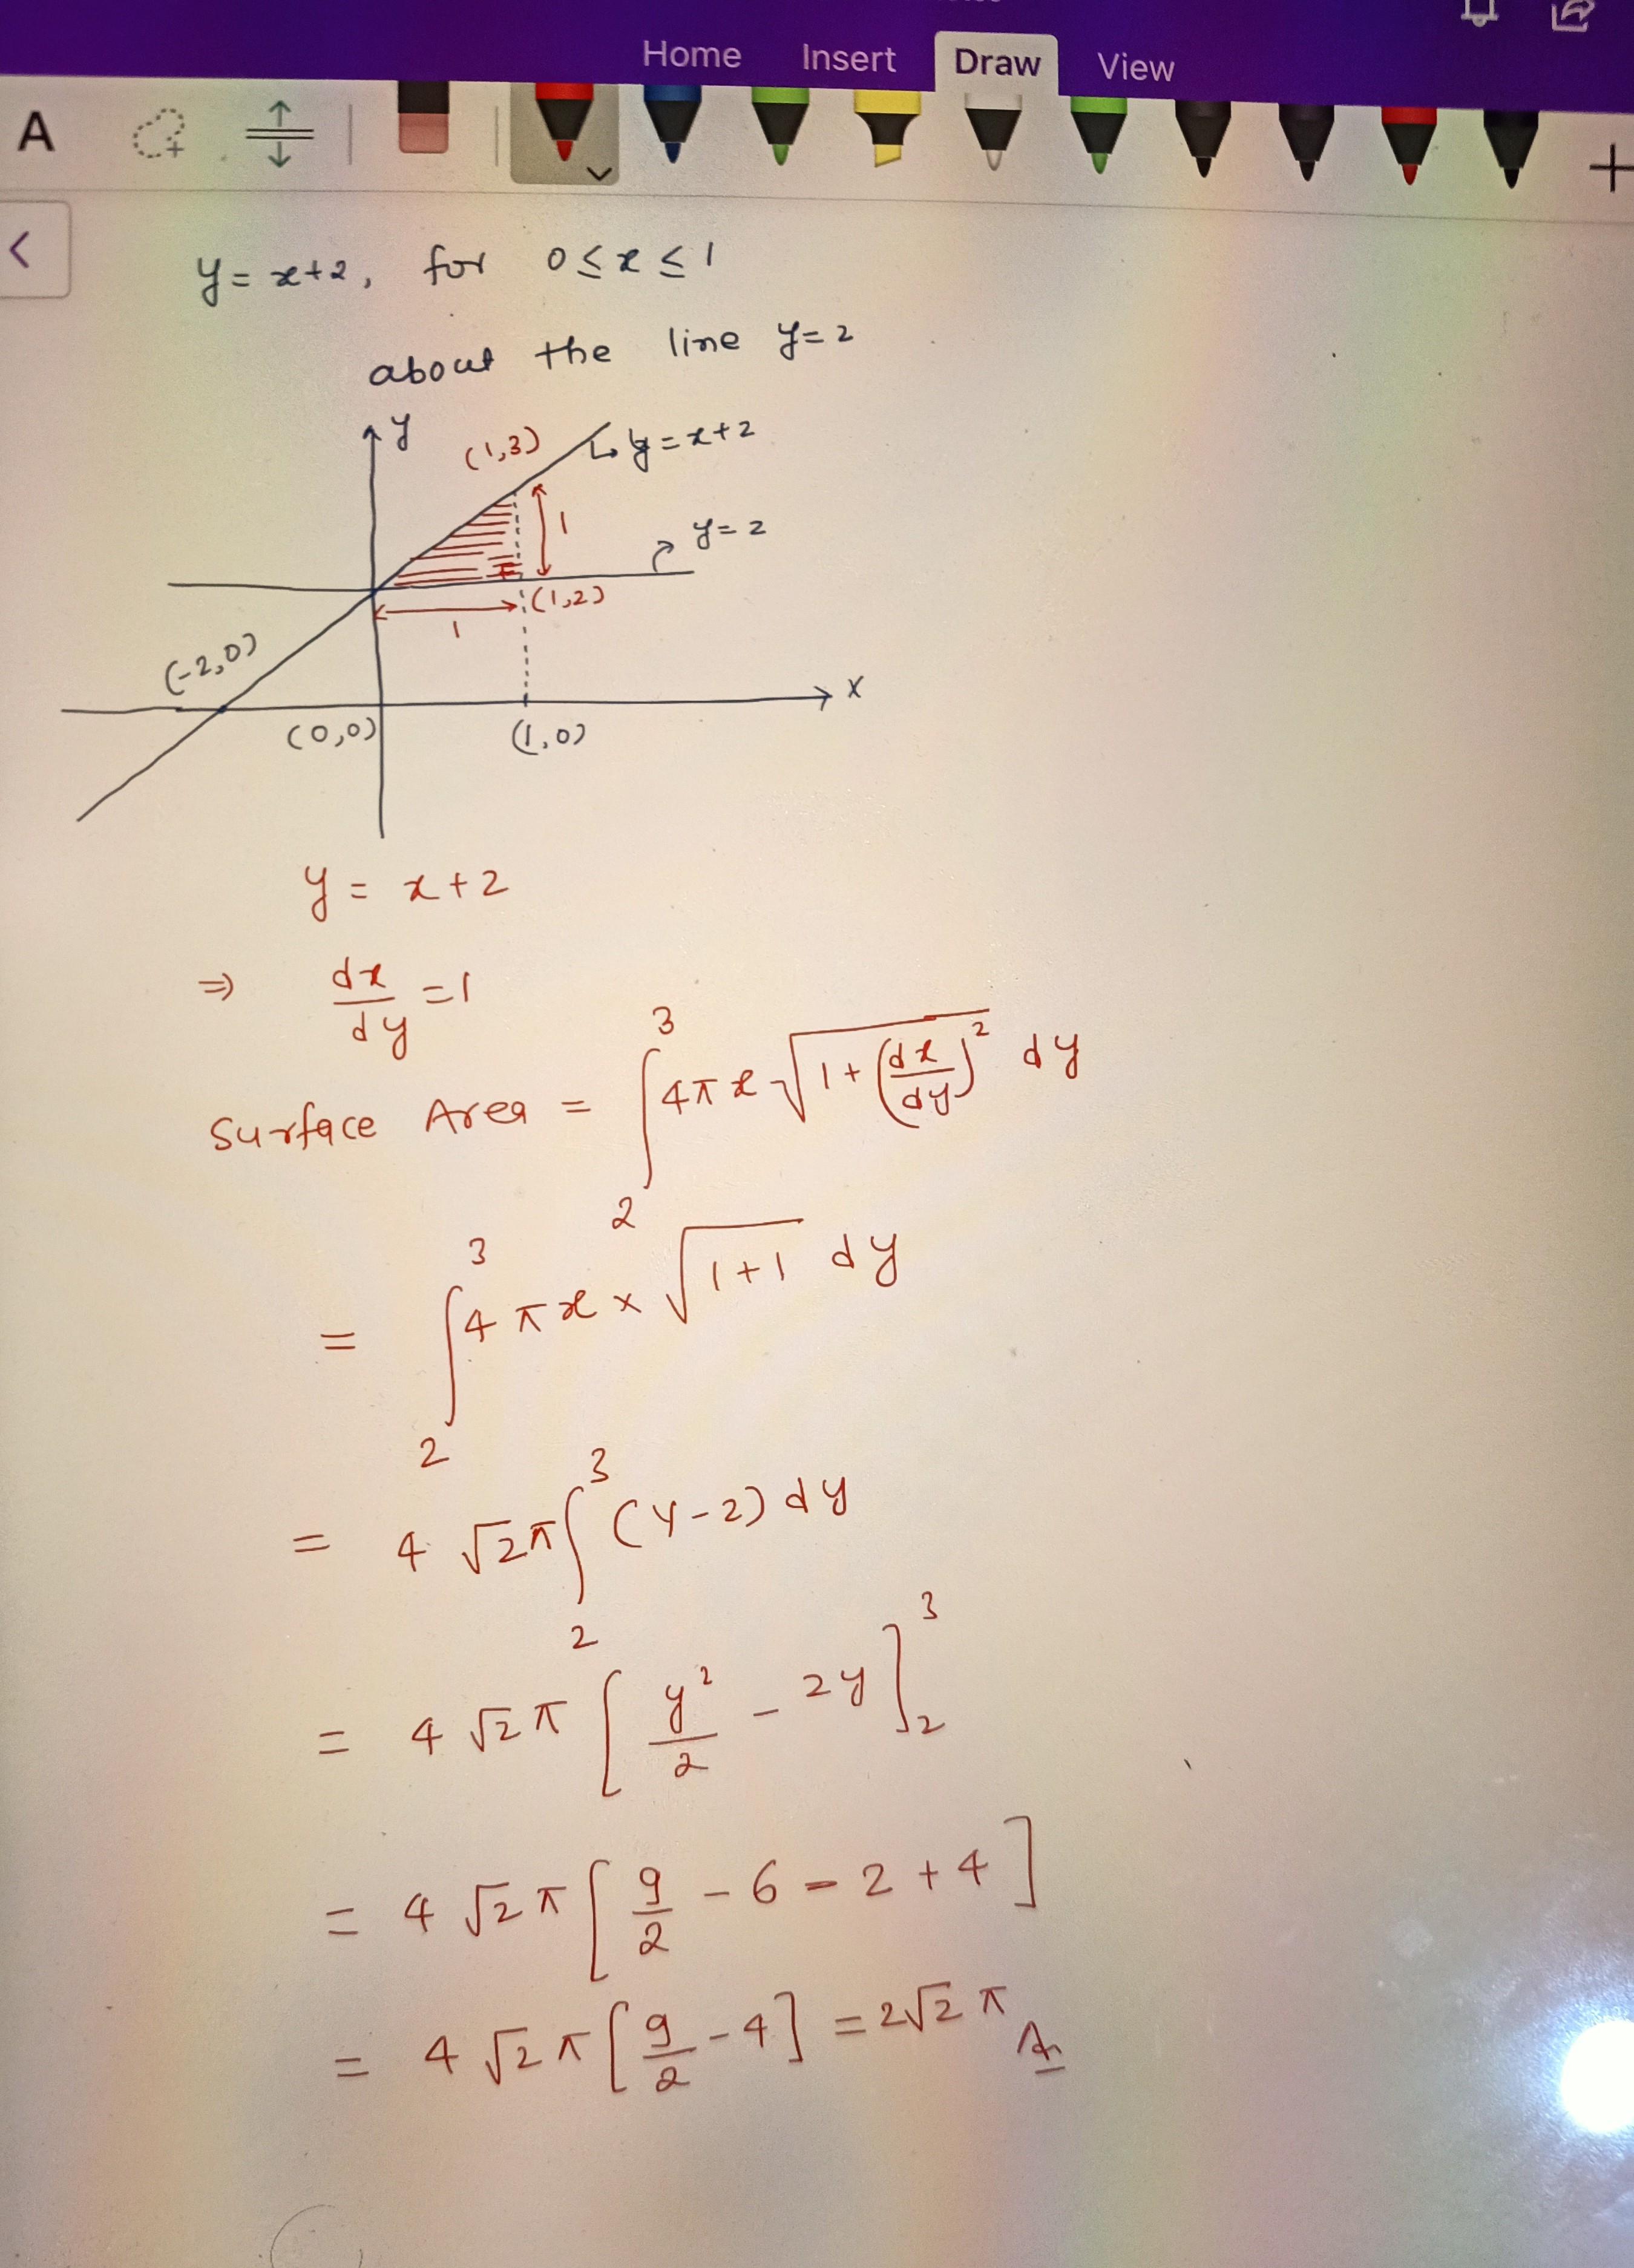 Home Insert Draw View
A
y = x+2, for 0 ≤ x ≤ 1
about the line y=2
y
(1,3)
y = x+2
1
y=2
(1,2)
1
(-2,0)
x
(0,0)
(1,0)
y = x+2
⇒ dx/dy = 1
Surface Area = ∫₂³ 4πx √(1+(dx/dy)²) dy
= ∫₂³ 4πx × √(1+1) dy
= 4√2π ∫₂³ (y-2) dy
= 4√2π [y²/2 - 2y]₂³
= 4√2π [9/2 - 6 - 2 + 4]
= 4√2π [9/2 - 4] = 2√2π